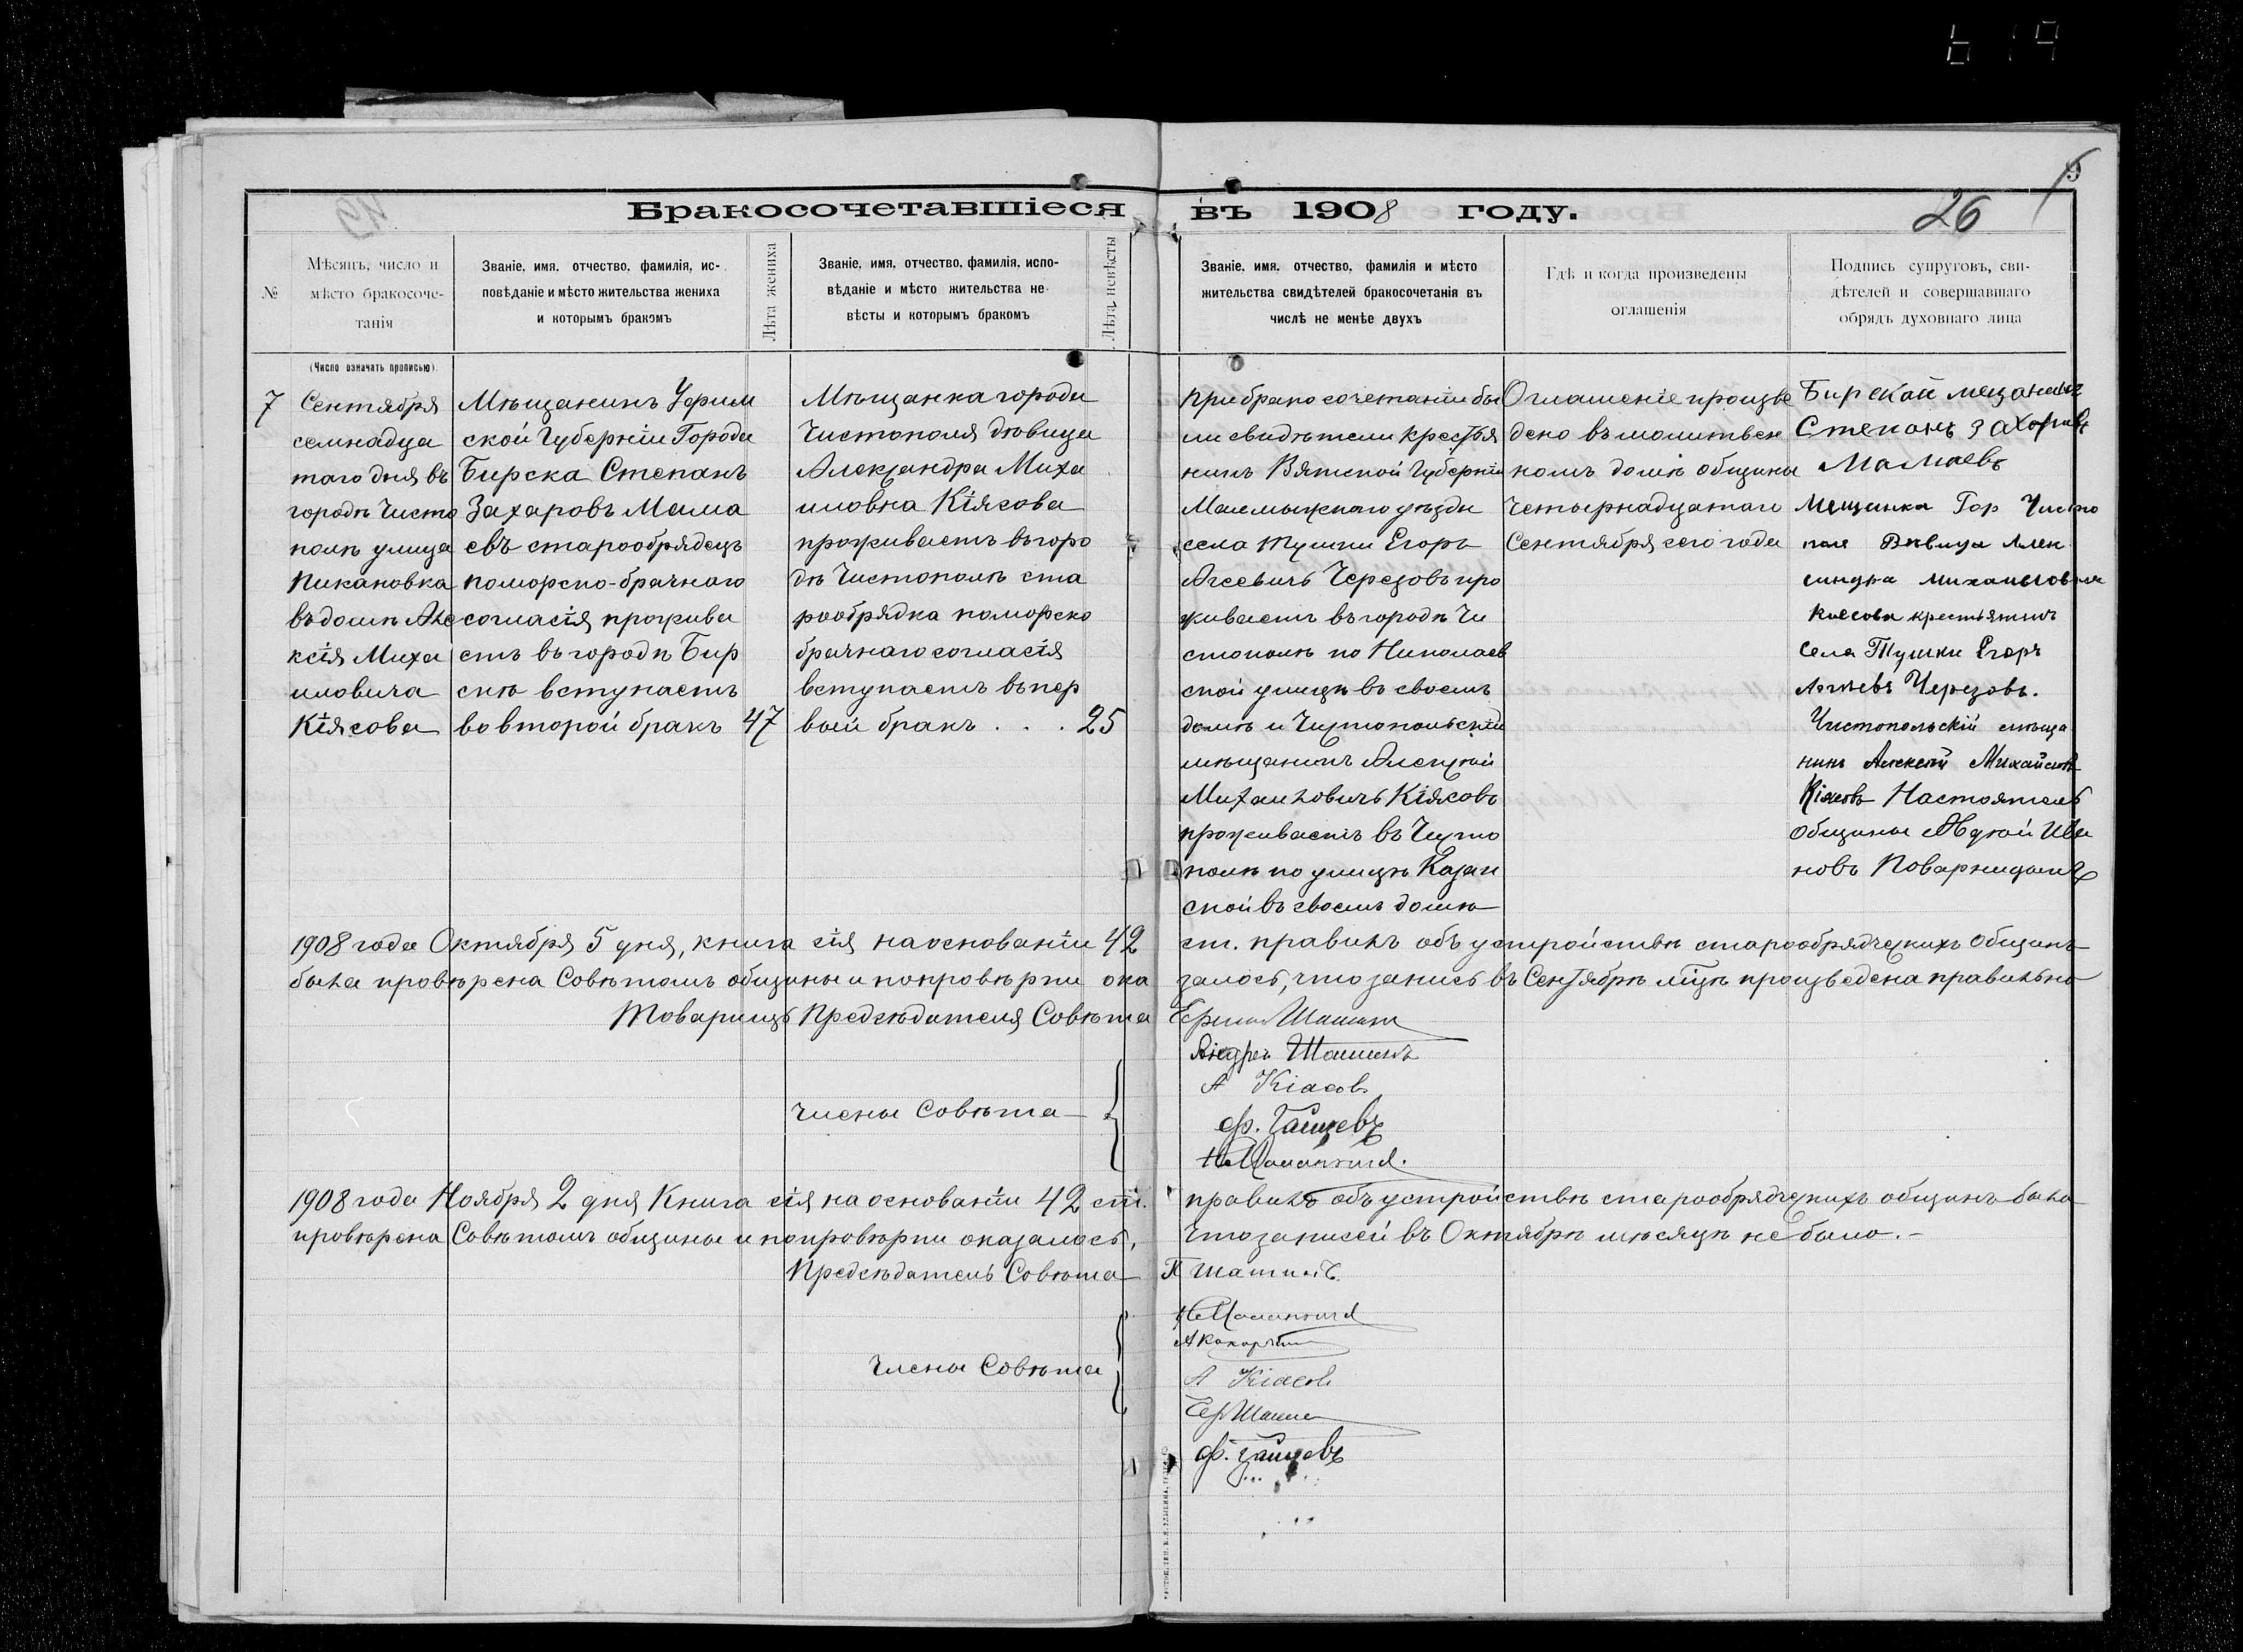 Бракосочетавшіеся въ 1908 году.
26
№
Мѣсяцъ, число и
мѣсто бракосоче-
танія
(Число означать прописью).
Званіе, имя, отчество, фамилія, ис-
повѣданіе и мѣсто жительства жениха
и которымъ бракомъ
Лѣта жениха
Званіе, имя, отчество, фамилія, испо-
вѣданіе и мѣсто жительства не-
вѣсты и которымъ бракомъ
Лѣта невѣсты
Званіе, имя, отчество, фамилія и мѣсто
жительства свидѣтелей бракосочетанія въ
числѣ не менѣе двухъ
Гдѣ и когда произведены
оглашенія
Подпись супруговъ, сви-
дѣтелей и совершавшаго
обрядъ духовнаго лица
7
Сентября
семнадца
таго дня въ
городѣ Чисто
полѣ улица
Пикановка
въ домѣ Але
ксія Миха
иловича
Кіясова
Мѣщанинъ Уфим
ской Губерніи Города
Бирска Степанъ
Захаровъ Мама
евъ старообрядецъ
поморско-брачнаго
согласія прожива
етъ въ городѣ Бир
скѣ вступаетъ
во второй бракъ 47
Мѣщанка города
Чистополя дѣвица
Александра Миха
иловна Кіясова
проживаетъ въ горо
дѣ Чистополѣ ста
рообрядка поморско
брачнаго согласія
вступаетъ въ пер
вый бракъ . . . 25
При бракосочетаніи бы
ли свидѣтели крестья
нинъ Вятской Губерніи
Малмыжскаго уѣзда
села Тушки Егоръ
Агеевичъ Черезовъ про
живаетъ въ городѣ Чи
стополѣ по Николаев
ской улицѣ въ своемъ
домѣ и Чистопольскій
мѣщанинъ Алексѣй
Михаиловичъ Кіясовъ
проживаетъ въ Чисто
полѣ по улицѣ Казан
ской въ своемъ домѣ
Оглашеніе произве
дено въ молитвен
номъ домѣ общины
Четырнадцатаго
Сентября сего года
Бирскай мещанинъ
Степанъ Захаравъ
Мамаевъ
Мещанка Гор Чисто
поля Дѣвица Алек
сандра Михаиловна
Киесова крестьянинъ
Села Тушки Егоръ
Агѣевъ Черезовъ.
Чистопольскій мѣща
нинъ Алексѣй Михайловъ
Кіясовъ Настоятель
общины Авдѣй Ива
новъ Поварницынъ
1908 года Октября 5 дня, книга сія на основаніи 42 ст. правилъ объ устройствѣ старообрядческихъ общинъ
была провѣрена Совѣтомъ общины и по провѣрки ока залось, что запись въ Сентябрѣ мѣцѣ произведена правильно
Товарищъ Предсѣдателя Совѣта
Андрей Шашинъ
А Кіасовъ
Члены Совѣта
1908 года Ноября 2 дня Книга сія на основаніи 42 ст. правилъ объ устройствѣ старообрядческихъ общинъ была
провѣрена Совѣтомъ общины и по провѣрки оказалось, что записей въ Октябрѣ мѣсяцѣ не было.-
Предсѣдатель Совѣта П Шашинъ
А Кокорчин
Члены Совѣта
А Кіасовъ